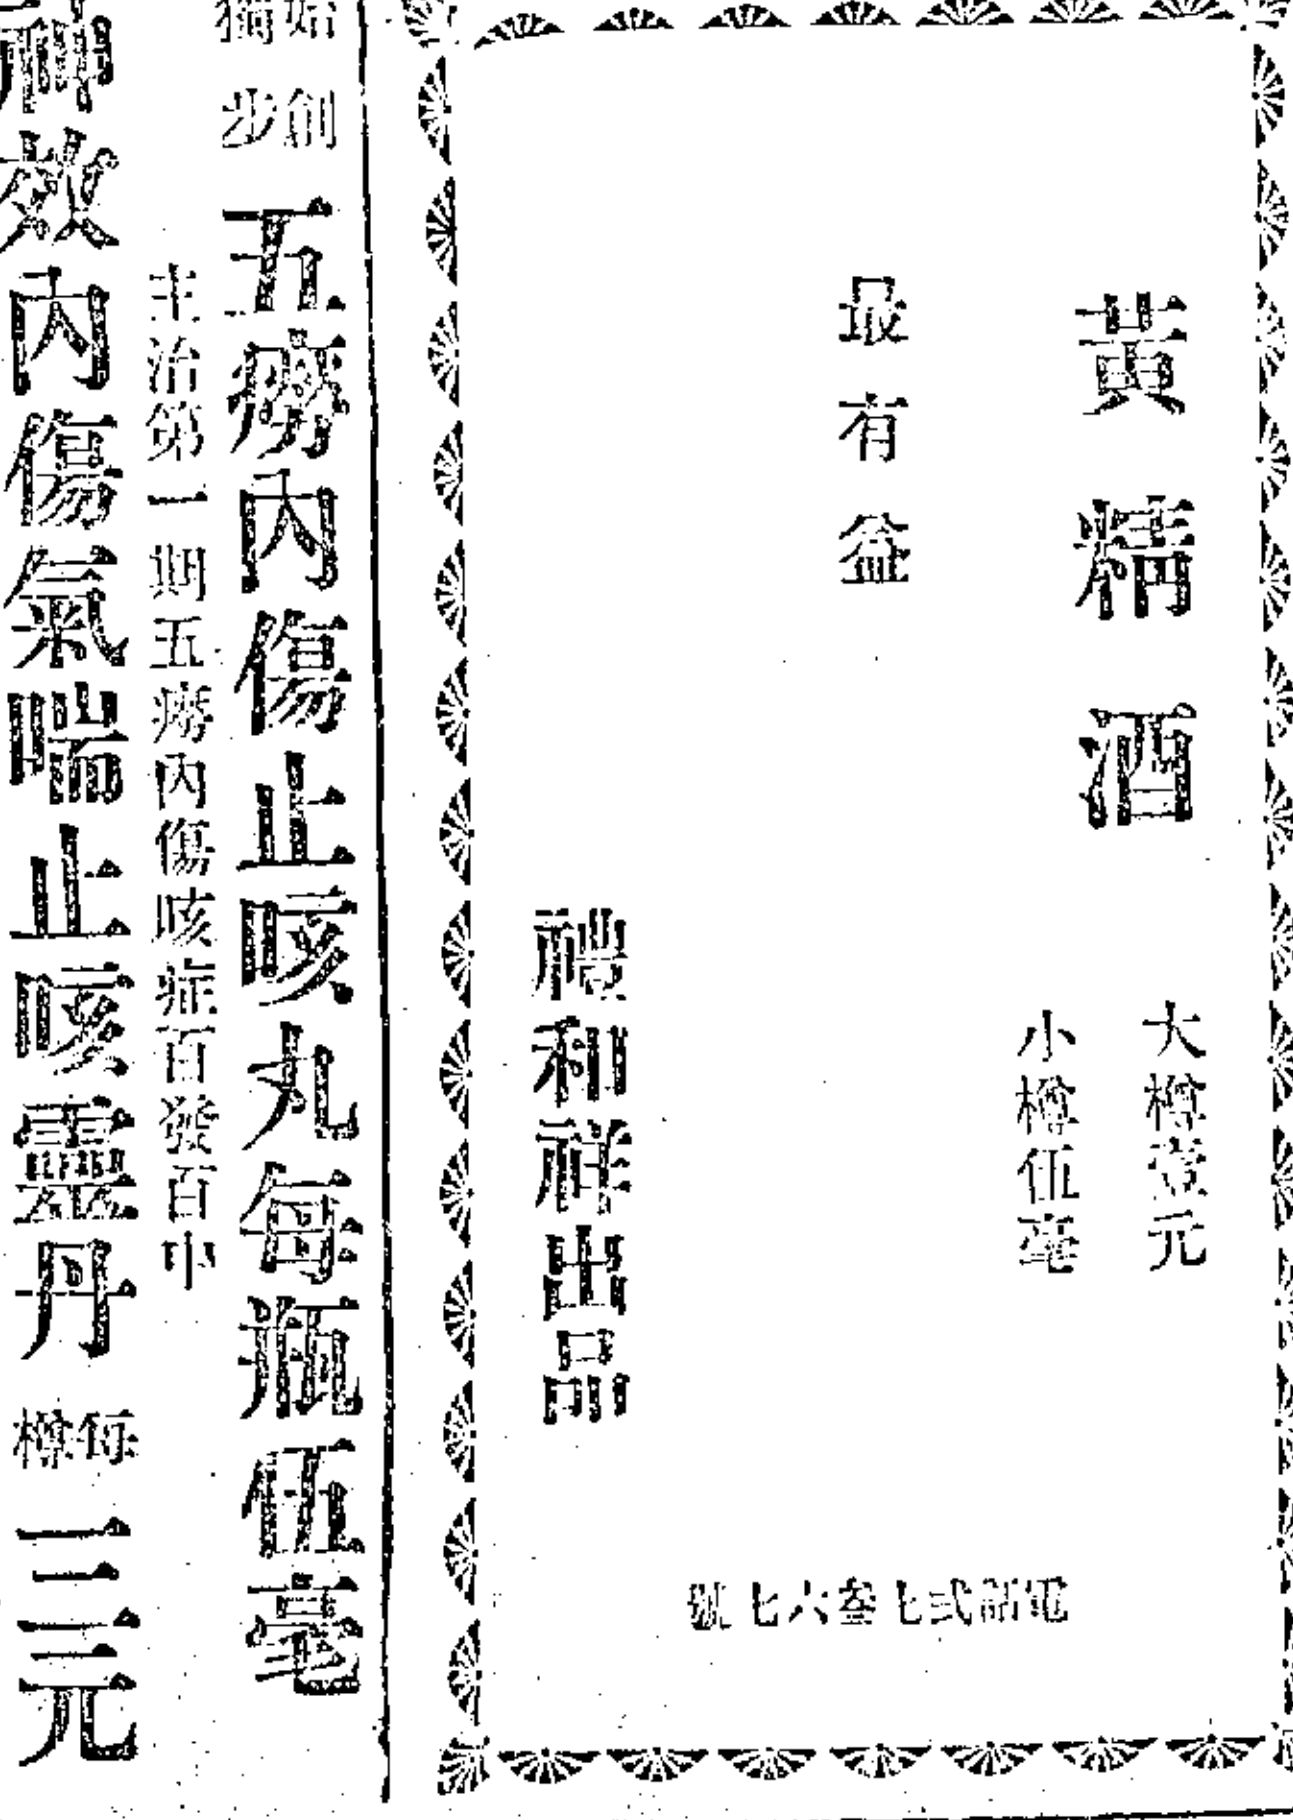 黃精酒
大樽壹元
小樽伍毫
最有益
禮和祥出品
電話弍七叁六七號
始創
獨步
五癆內傷止咳丸每瓶伍毫
主治第一期五癆內傷咳症百發百中
神效內傷氣喘止咳靈丹
每樽
三元